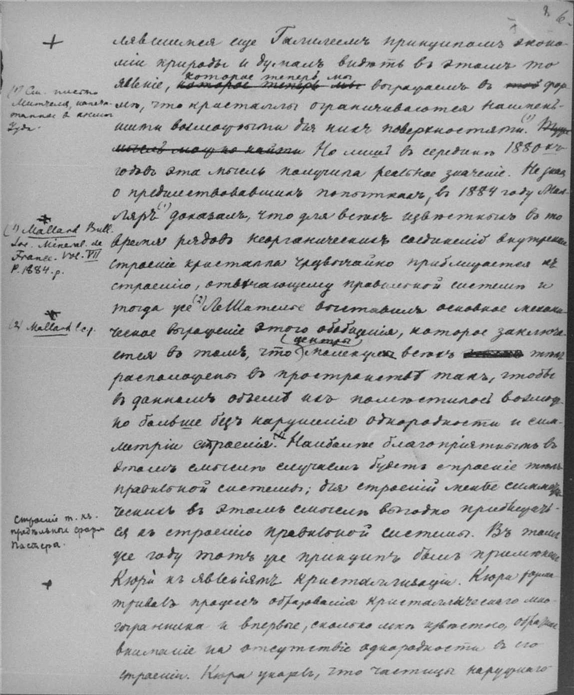 8. 6.
лявшимся еще Галилеемъ принципомъ эконо
міи природы и думалъ видѣть въ этомъ то
явленіе, которое теперь мы выражаемъ въ фор
мѣ, что кристаллы ограничиваются наимень
шими возможными для нихъ поверхностями. (1)
Но лишь въ серединѣ 1880хъ
годовъ эта мысль получила реальное значеніе. Не зная
о предшествовавшихъ попыткахъ, въ 1884 году Мал
ляръ (1) доказалъ, что для всѣхъ извѣстныхъ въ то
время рядовъ неорганическихъ соединеній внутреннее
строеніе кристалла чрезвычайно приближается къ
строенію, отвѣчающему правильной системѣ и
тогда же (2) Ле Шателье выставилъ основное механи
ческое выраженіе этого обобщенія, которое заключа
ется въ томъ, что центры молекулъ всѣхъ тѣлъ
расположены въ пространствѣ такъ, чтобы
въ данномъ объемѣ ихъ помѣстилось возмож
но больше безъ нарушенія однородности и сим
метріи строенія. Наиболѣе благопріятнымъ въ
этомъ смыслѣ случаемъ будетъ строеніе тѣлъ
правильной системы; для строеній менѣе симметри
ческихъ въ этомъ смыслѣ выгодно приближать
ся къ строенію правильной системы. Въ томъ
же году тотъ же принципъ былъ примѣненъ
Кюри къ явленіямъ кристаллизаціи. Кюри разсма
тривалъ процессъ образованія кристаллическаго мно
гогранника и впервые, сколько мнѣ извѣстно, обратилъ
вниманіе на отсутствіе однородности въ его
строеніи. Кюри указалъ, что частицы наружнаго
(1) См.
Митчела, напеча
танное въ
(1) Mallard Bull.
Soc. Minéral. de
Franc. Vol. VII
P. 1884. p.
(2) Mallard l. c.
Строеніе т. к.
Пастера.